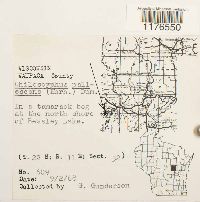 1176550
WISCONSIN
WAUPACA County
Chiloscyphus pall-
escens (Ehrh.) Dum.
In a tamarack bog
at the north shore
of Beasley Lake.
(T. 22 N; R. 11 E; Sect.
No. 509
Date: 9/2/68
Collected by G. Gunderson